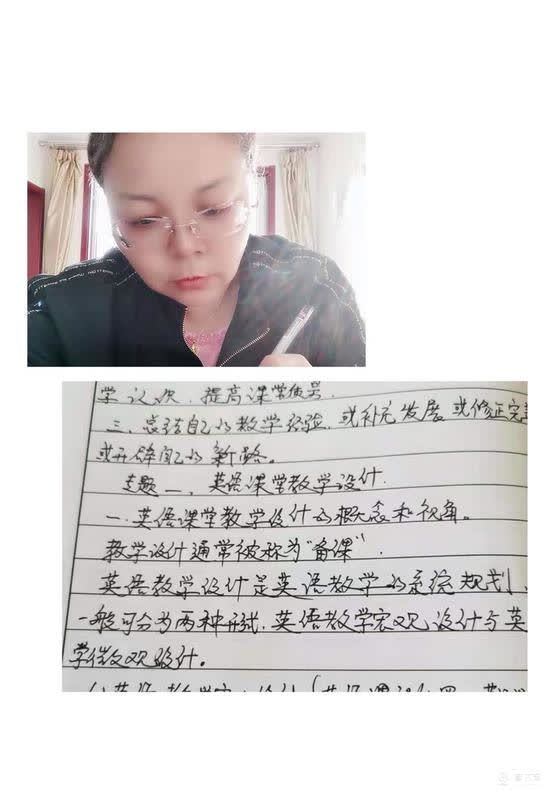 学认次，提高课堂质量.
三、总结自己的教学经验，或补充发展或修正完
或开辟自己的新路。
专题一、英语课堂教学设计.
一.英语课堂教学设计的概念和视角。
教学设计通常被称为“备课”.
英语教学设计是英语教学的系统规划，
一般可分为两种形式.英语教学宏观设计与英
学微观设计。
美篇